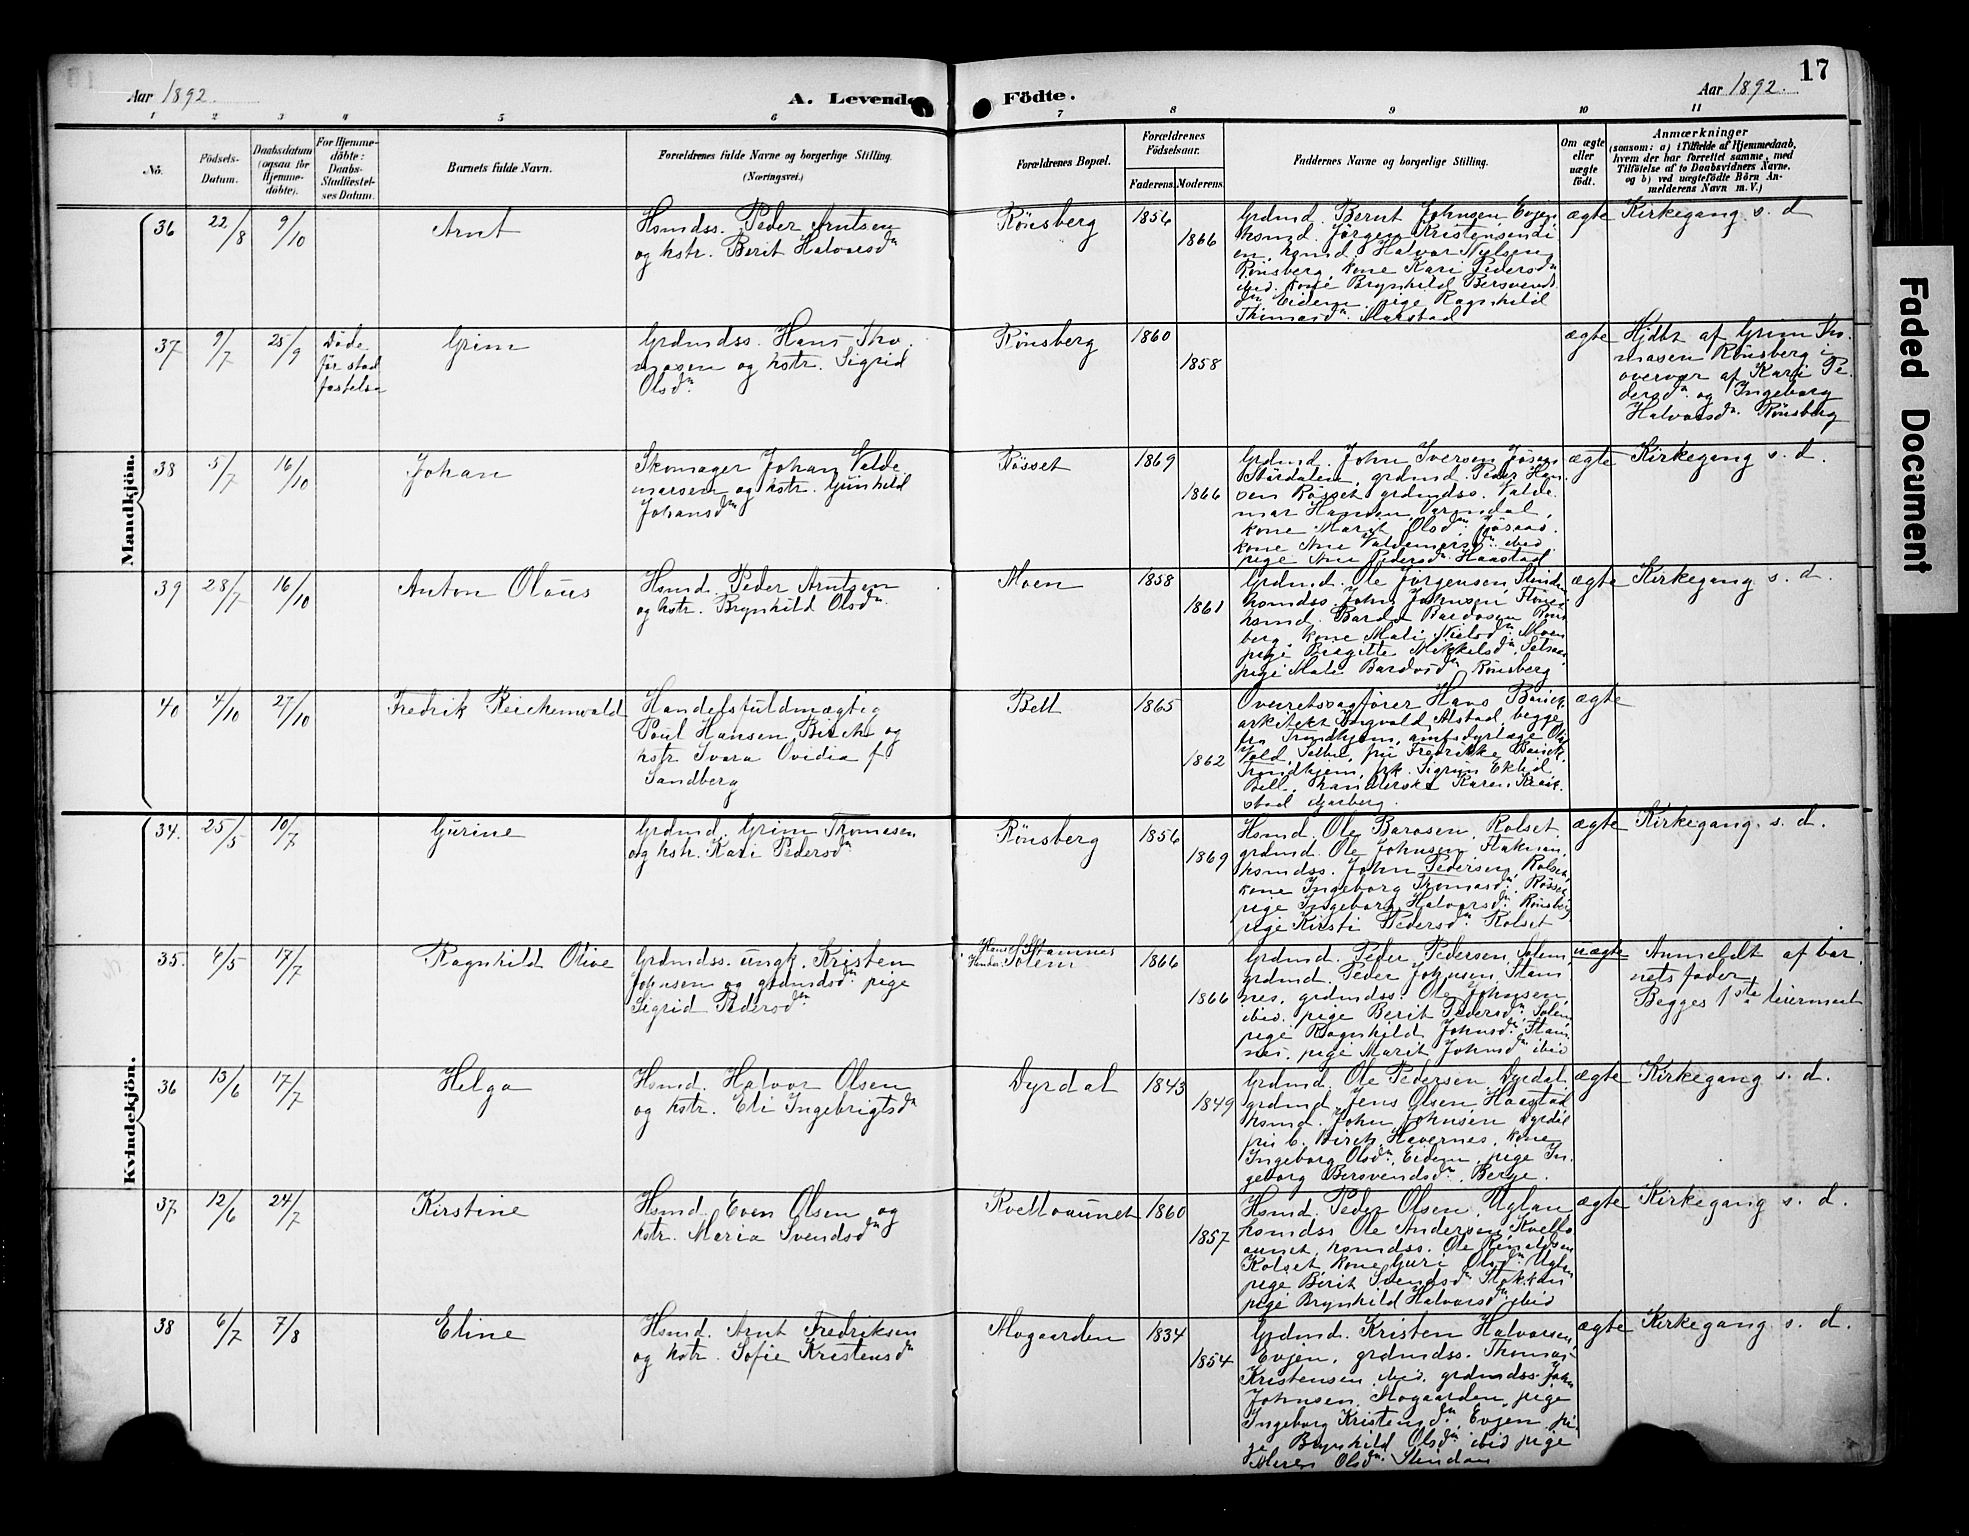 17
Aar 1892.
A. Levende Födte.
Aar 1892.
1 2 3 4 5 6 7 8 9 10 11
No.
Födsels-Datum.
Daabsdatum (ogsaa for Hjemme-döbte).
For Hjemme-döbte: Daabs-Stadfæstel-ses Datum.
Barnets fulde Navn.
Forældrenes fulde Navne og borgerlige Stilling.
(Næringsvei.)
Forældrenes Bopæl.
Forældrenes Födselsaar.
Faderens. Moderens.
Faddernes Navne og borgerlige Stilling.
Om ægte eller uægte födt.
Anmærkninger
(saasom: a) i Tilfælde af Hjemmedaab, hvem der har forrettet samme, med Tilföielse af to Daabsvidners Navne, og b) ved uægtefödte Börn Anmelderens Navn m. V.)
Mandkjön.
36 22/8 9/10 Arnt
Hsmdss. Peder Arntsen
og hstr. Berit Halvorsdn
Rønsberg 1856 1866
Grdmd. Bernt Johnsen Evjen
hsmd. Jørgen Kristensen
hsmd. Halvor Nilsen
Rønsberg, kone Kari Pedersdn
ibid. kone Brynhild Bersvends
dn Eidem, pige Ragnhild
Thomasdn
ægte Kirkegang s. d
37 9/7 25/9
Døde
før stad
fæstelse
Grim
Grdmdss. Hans Tho
masen og hstr. Sigrid
Olsdn
Rønsberg 1860 1858
ægte
Hjdbt af Grim Tho
masen Rønsberg i
overvær af Kari Pe
dersdn og Ingeborg
Halvorsdn Rønsberg
38 5/7 16/10 Johan
Skomager Johan Valde
marsen og hstr. Gunhild
Johansdn
Røsset 1869 1866
Grdmd. John Iversen
Stördalen, grdmd. Peder Han
sen Røsset grdmdss. Valde
mar Hansen
kone Marit Olsdn
kone Ane Valdemarsdn ibid
pige Ane Pedersdn Haastad
ægte Kirkegang s. d.
39 28/7 16/10 Anton Olaus
Hsmd. Peder Arntsen
og hstr. Brynhild Olsdn
Moen 1858 1861
Grdmd. Ole Jørgensen
hsmdss. John Johnsen
hsmd. Bardo Bardosen Røns
berg, kone Mali Nielsdn Moen
pige Beagitte Mikkelsdn
pige Mali Bardosdn Rønsberg
ægte Kirkegang s. d.
40 4/10 27/10 Fredrik Reichenwald
Handelsfuldmægtig
Poul Hansen Birch og
hstr Svara Ovidia f
Sandberg
Bell 1865 1862
Overretssagfører Hans Bauck
arkitekt Ingvald Alstad, begge
fra Trondhjem, amtsdyrlæge Olaf
Vold, Selbu, fru Fredrikke Bauck
Trondhjem, frk. Sigrun
Bell, Karen
ægte
Kvindekjön.
34. 25/5 10/7 Gurine
Grdmd. Grim Thomasen
og hstr. Kari Pedersdn
Rønsberg 1856 1869
Hsmd. Ole Barosen, Rolset
grdmd. Ole Johnsen
hsmdss. John Pedersen, Rolset
kone Ingeborg Thomasdn, Røsset
pige Ingeborg Halvorsdn Rønsberg
pige Kirsti Pedersdn Rolset
ægte Kirkegang s. d.
35. 6/5 17/7 Ragnhild Olive
Grdmdss. ungk. Kristen
Johnsen og grdmdsdn pige
Sigrid Pedersdn
Hans: Stamnes
Hendes: Solem
1866 1866
Grdmd. Peder Pedersen, Solem
grdmd. Peder Johnsen, Stam
nes, grdmdss. Ole Johnsen,
ibid. pige Berit Pedersdn Solem
pige Ragnhild Johnsdn Stam
nes, pige Marit Johnsdn ibid
uægte
Anmeldt af bar
nets fader
Begges 1ste leiermaal
36 13/6 17/7 Helga
Hsmd. Halvor Olsen
og hstr. Eli Ingebrigtsdn
Dyrdal 1843 1849
Grdmd. Ole Pedersen Dyrdal
grdmd. Jens Olsen Haastad
hsmd. John Johnsen Dyrdal
fru C. Birch, Havernes, kone
Ingeborg Olsdn, Eidem, pige In
geborg Bersvendsdn, Berge.
ægte Kirkegang s. d.
37. 12/6 24/7 Kirstine
Hsmd. Even Olsen og
hstr. Maria Svendsdn
Kvelloaunet 1860 1857
Hsmd. Peder Olsen, Uglan
hsmdss Ole Andersen, Kvello
aunet, hsmdss. Ole Renaldsen
Rolset kone Guri Olsdn Uglan
pige Berit Svendsdn Stokkan
pige Brynhild Halvorsdn ibid
ægte Kirkegang s. d.
38 6/7 7/8 Eline
Hsmd. Arnt Fredriksen
og hstr. Sofie Kristensdn
Mogaarden 1834 1854
Grdmd. Kristen Halvorsen
Evjen, grdmdss. Thomas
Kristensen ibid. grdmdss. John
Johnsen, Mogaarden, pige
Ingeborg Kristensdn, Evjen, pi
ge Brynhild Olsdn ibid pige
Meren Olsdn
ægte Kirkegang s. d.
Faded Document